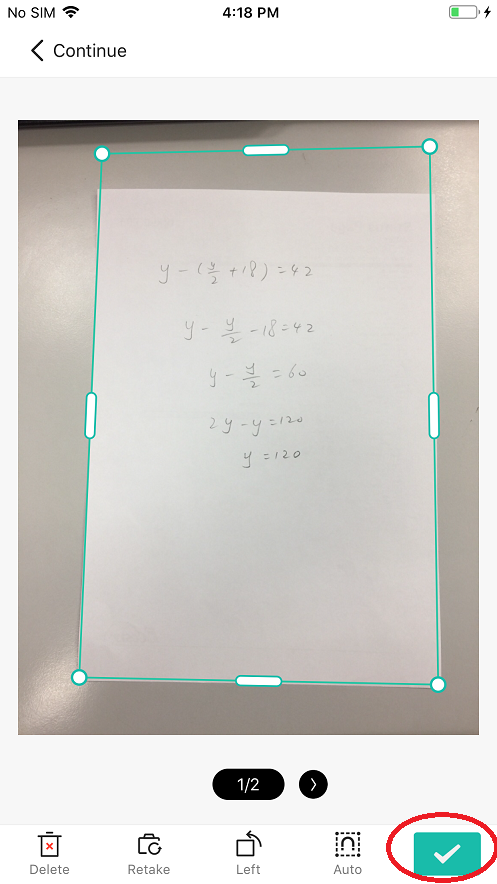 No SIM 4:18 PM
Continue
y - (y/2 + 18) = 42
y - y/2 - 18 = 42
y - y/2 = 60
2y - y = 120
y = 120
1/2
Delete Retake Left Auto